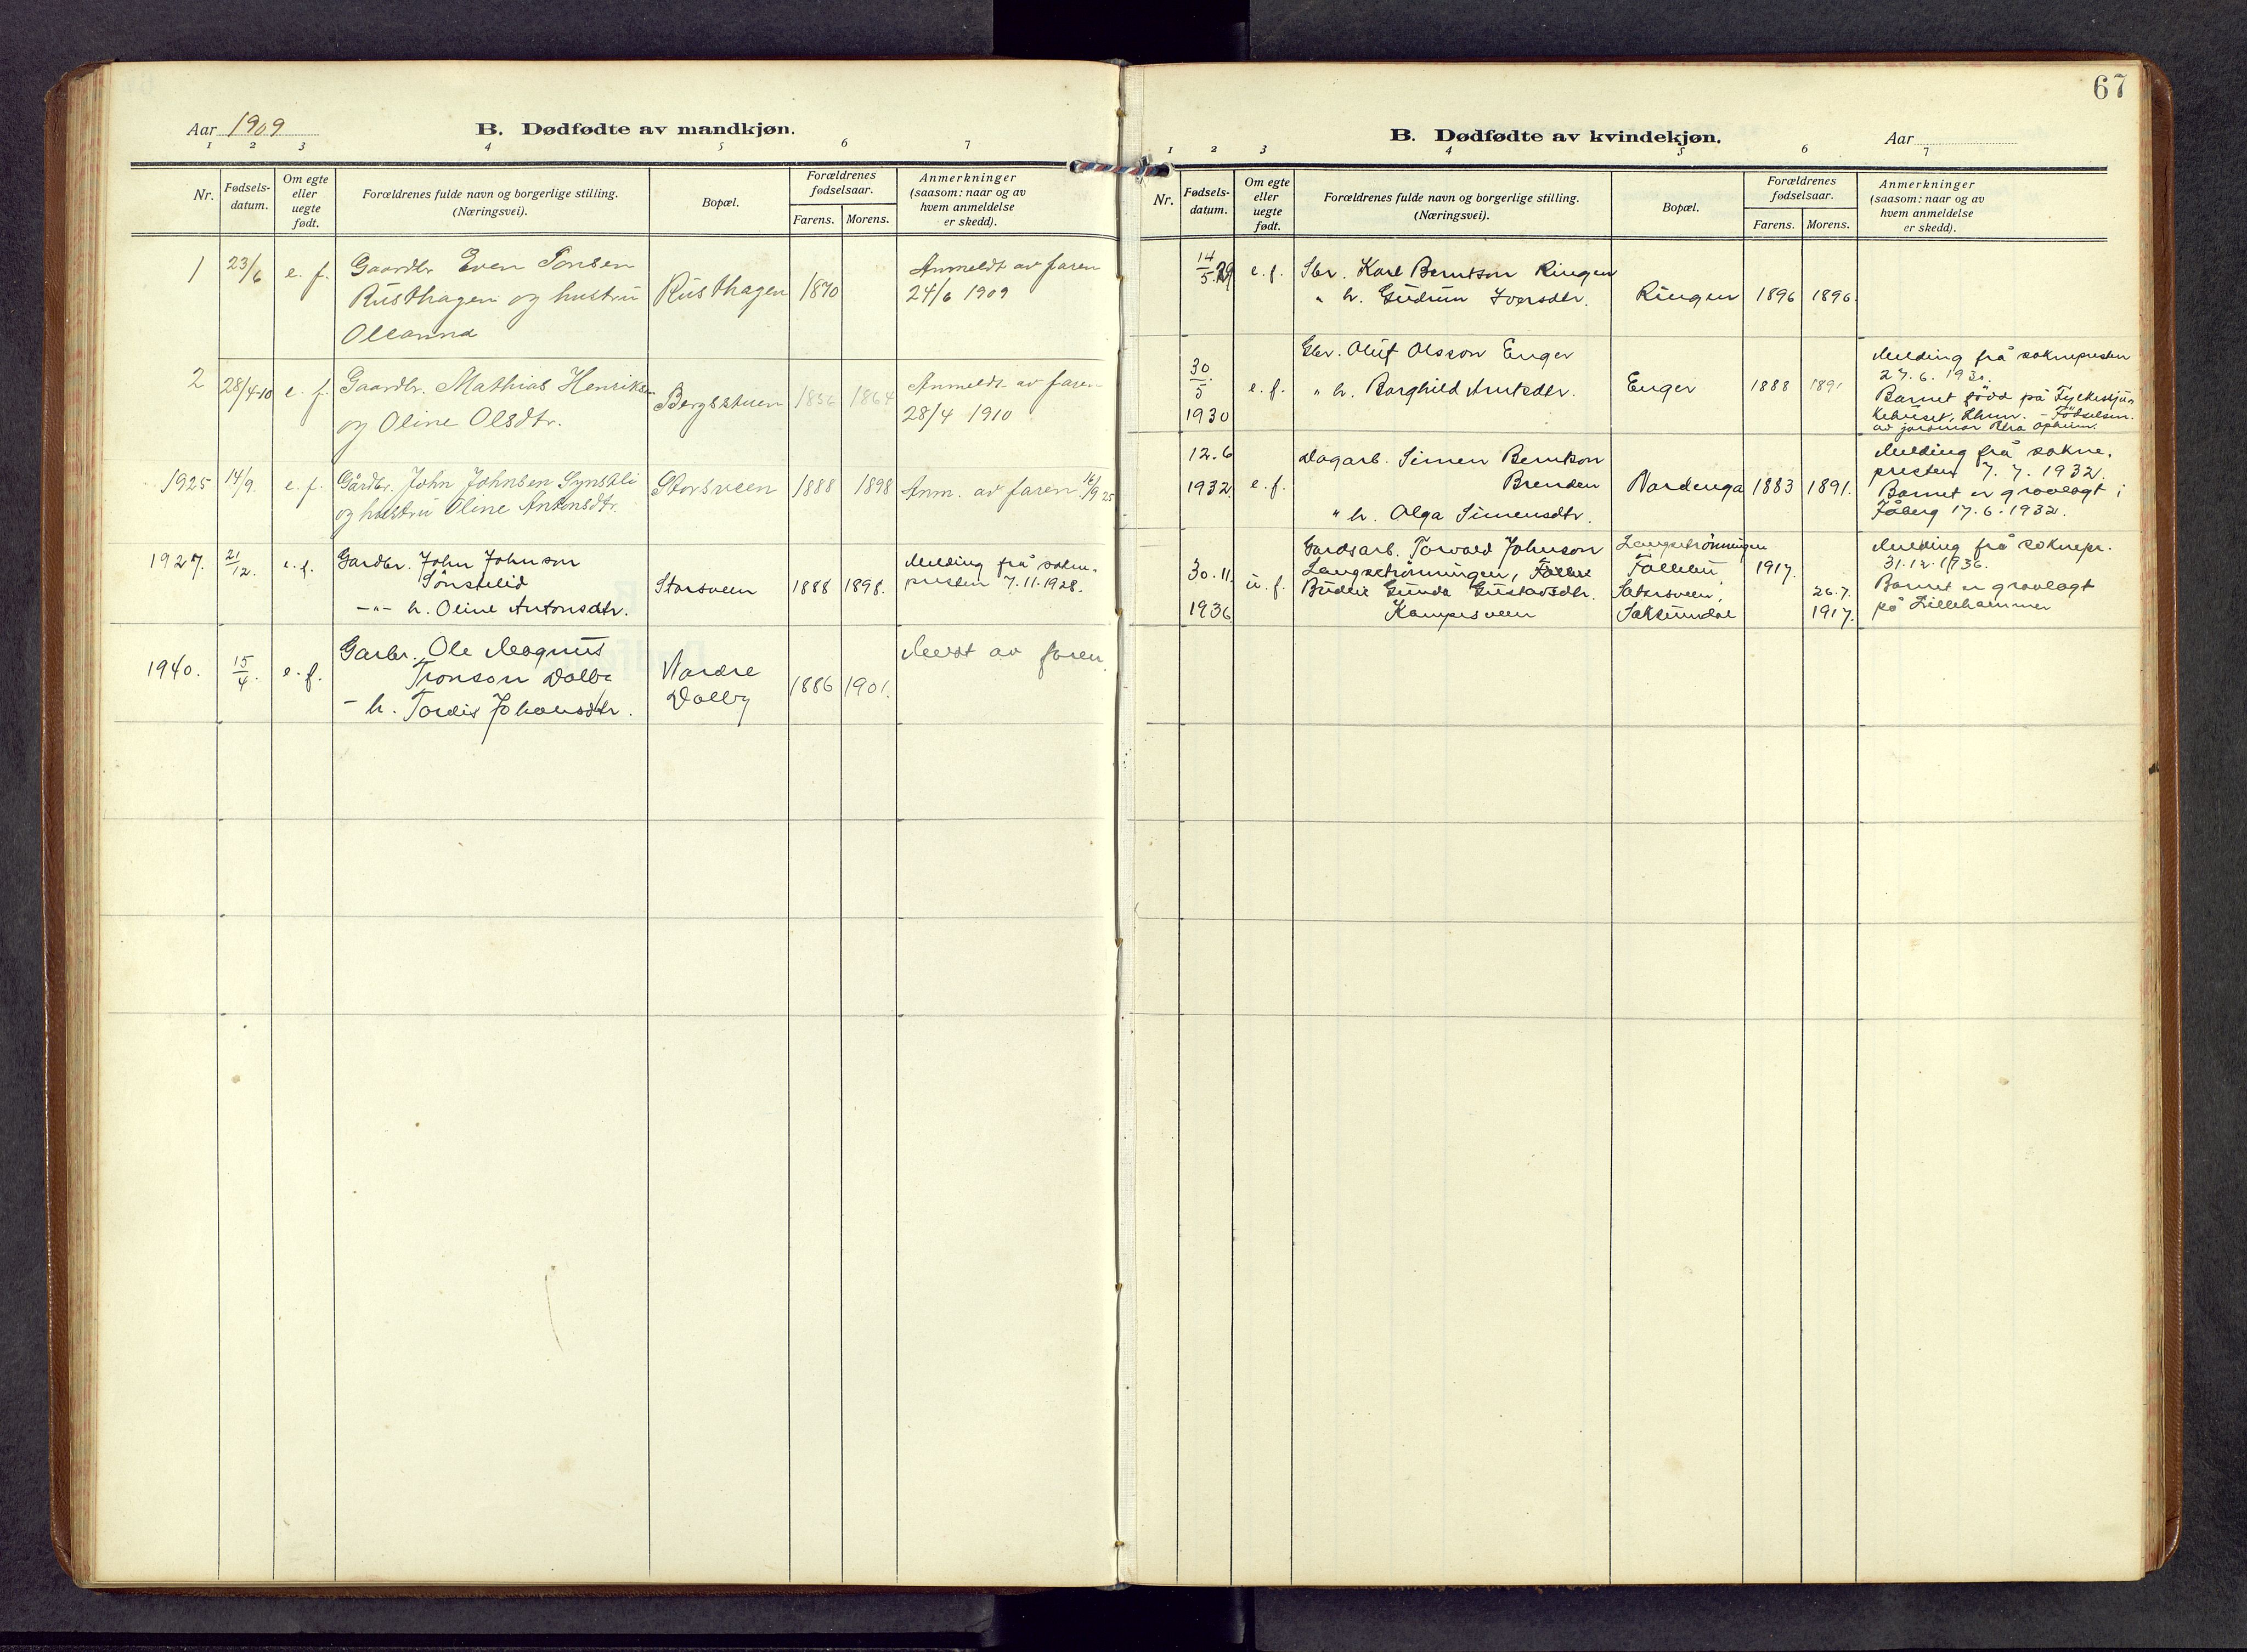 Aar 1909
B. Dødfødte av mandkjøn.
1 2 3 4 5 6 7
Nr.
Fødsels-
datum.
Om egte
eller
uegte
født.
Forældrenes fulde navn og borgerlige stilling.
(Næringsvei).
Bopæl.
Forældrenes
fødselsaar.
Farens. Morens.
Anmerkninger
(saasom: naar og av
hvem anmeldelse
er skedd).
1 23/6 e. f. Gaardbr. Even Jonsen
Rusthagen og hustru
Oleanna
Rusthagen 1870
Anmeldt av faren
24/6 1909
2 28/4-10 e. f. Gaardbr. Mathias Henriksen
og Oline Olsdtr.
Bergsstuen 1864
Anmeldt av faren
28/4 1910
1925 14/9 e. f. Gårdbr. John Johnsen Synstli
og hustru Oline Antonsdtr.
Storsveen 1888 1898 Anm. av faren 16/9 25
1927. 21/12. e. f. Gardbr. John Johnson
Sönstelid
-"- h. Oline Antonsdtr.
Storsveen 1888 1898.
Melding frå sokne-
presten 7.11.1928.
1940. 15/4. e. f. Garbr. Ole Magnus
Tronson Dalby
- h. Tordis Johansdtr.
Nordre
Dalby
1886 1901.
Meldt av faren.
67
B. Dødfødte av kvindekjøn.
Aar
1 2 3 4 5 6 7
Nr.
Fødsels-
datum.
Om egte
eller
uegte
født.
Forældrenes fulde navn og borgerlige stilling.
(Næringsvei).
Bopæl.
Forældrenes
fødselsaar.
Farens. Morens.
Anmerkninger
(saasom: naar og av
hvem anmeldelse
er skedd).
14/5.29 e. f. Karl Berntson Ringen
" h. Gudrun Iversdtr.
Ringen 1896 1896.
30/5
1930
e. f.
Gbr. Oluf Olsson Enger
" h. Borghild Amtsdtr.
Enger 1888 1891
Melding frå soknepresten
27.6.1930.
Barnet född på Fylkessju-
kehuset, Lhmr. -
av jordmor Opheim.
12.6
1932. e. f.
Dagarb. Simen Berntson
Brenden
" h. Olga Simensdtr.
Nordenga 1883 1891.
Melding frå sokne.
presten 7. 7. 1932.
Barnet er gravlagt i
Fåberg 17.6.1932.
30.11.
1936
u. f.
Gardsarb. Torvald Johnson
Langsetrönningen,
Budeie Gunda Gustavsdtr.
Kampesveen
Langsetrönningen
Follebu
Satersveen,
Saksumdal
1917.
26.7.
1917.
Melding frå soknepr.
31.12.1936.
Barnet er gravlagt
på Lillehammer